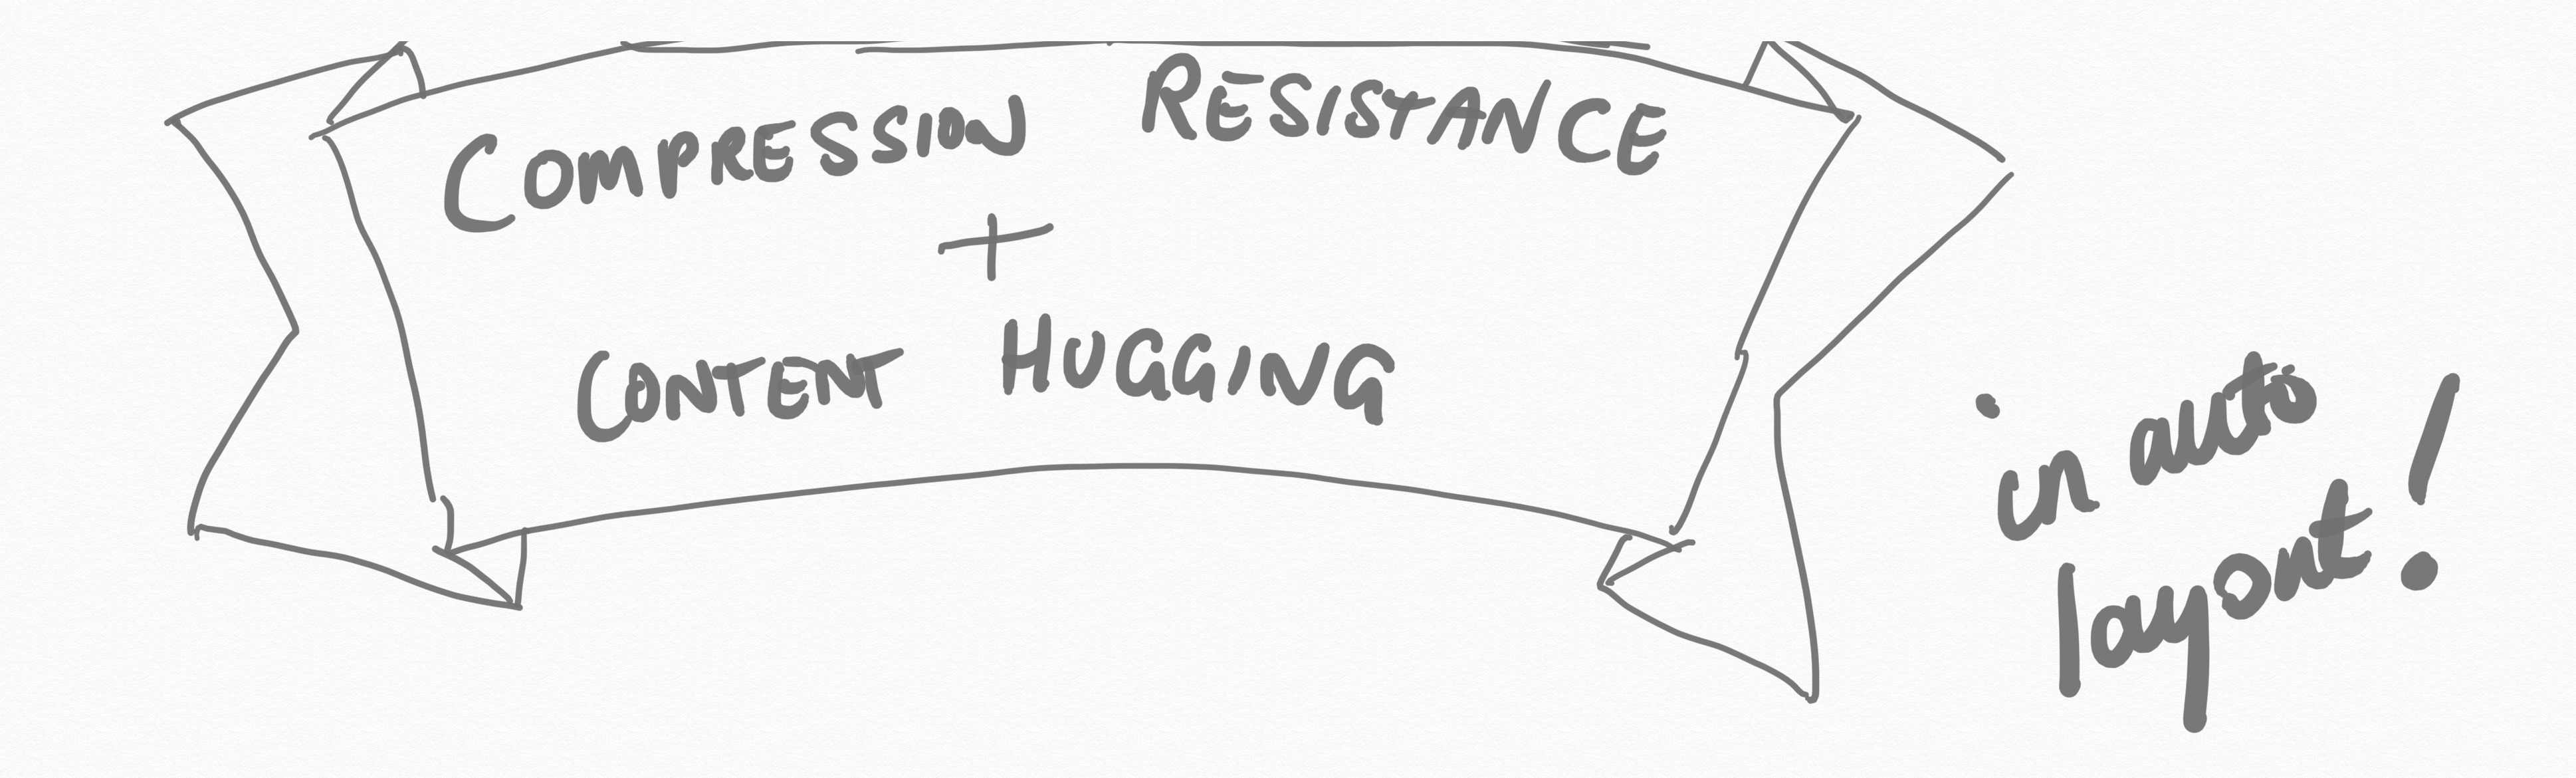 COMPRESSION RESISTANCE
+
CONTENT HUGGING
in auto
layout!